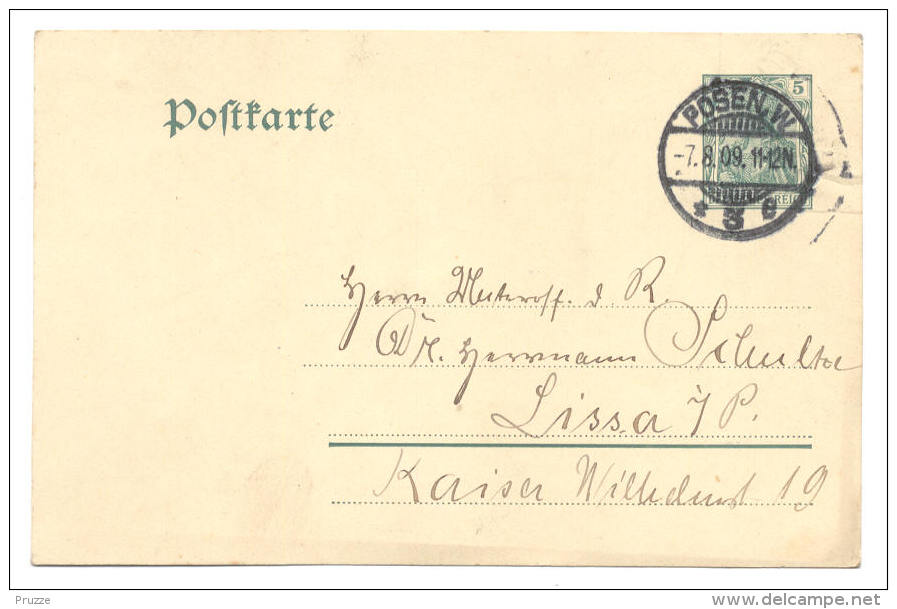 Postkarte
5
POSEN. W.
-7.8.09. 11-12N.
* 3 e
REICH
Herrn Unteroff. d. R.
Dr. Herrmann Schultze
Lissa i/P.
Kaiser Wilhelmst 19
Pruzze
www.delcampe.net